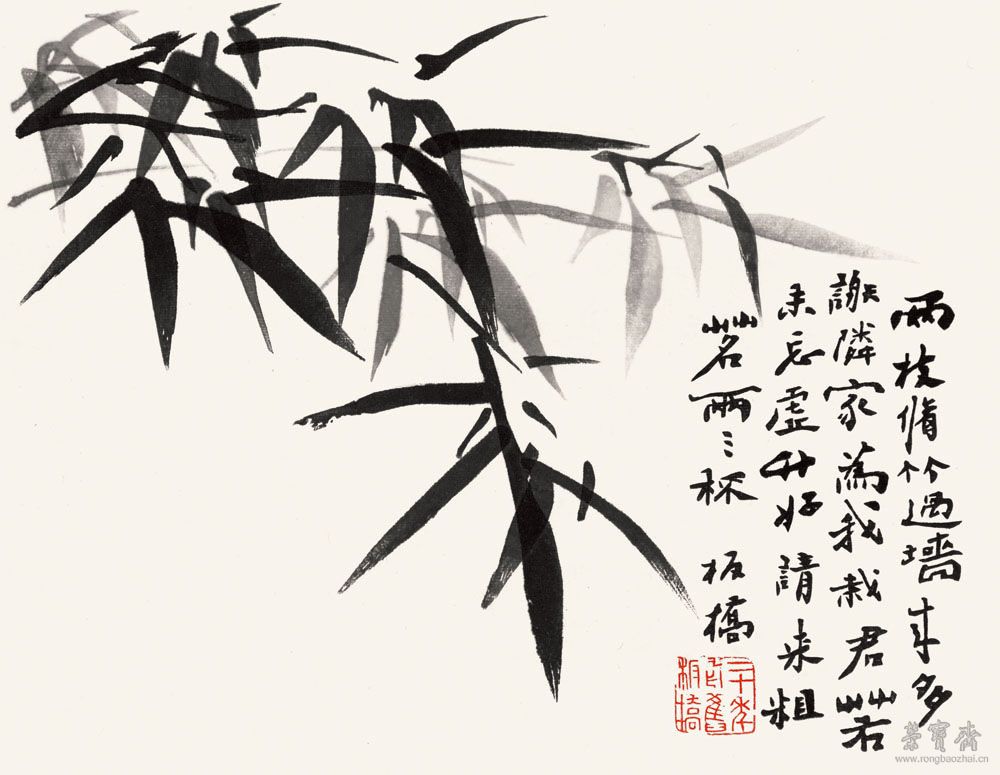 兩枝脩竹過墻来多
謝隣家為我栽君若
未忘虚竹好請来粗
茗兩三杯 板橋
二十年
前舊
板橋
榮寶齋
www.rongbaozhai.cn